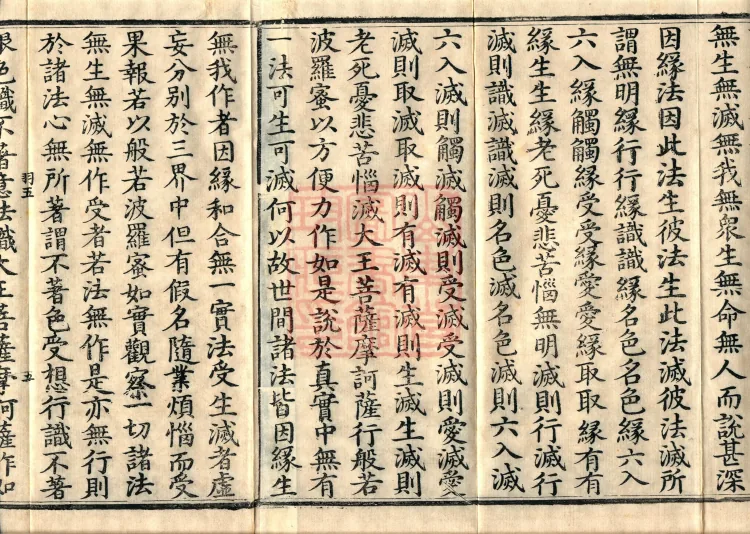 無生無滅無我無衆生無命無人而說甚深
因緣法因此法生彼法生此法滅彼法滅所
謂無明緣行行緣識識緣名色名色緣六入
六入緣觸觸緣受受緣愛愛緣取取緣有有
緣生生緣老死憂悲苦惱無明滅則行滅行
滅則識滅識滅則名色滅名色滅則六入滅
六入滅則觸滅觸滅則受滅受滅則愛滅愛
滅則取滅取滅則有滅有滅則生滅生滅則
老死憂悲苦惱滅大王菩薩摩訶薩行般若
波羅蜜以方便力作如是說於真實中無有
一法可生可滅何以故世間諸法皆因緣生
無我作者因緣和合無一實法受生滅者虛
妄分別於三界中但有假名隨業煩惱而受
果報若以般若波羅蜜如實觀察一切諸法
無生無滅無作受者若法無作是亦無行則
於諸法心無所著謂不著色受想行識不著
羽五
五
眼色識不著意法識大王菩薩摩訶薩作如